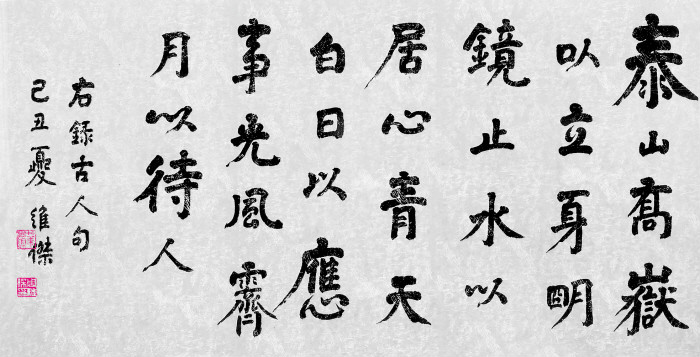 泰山喬嶽
以立身明
鏡止水以
居心青天
白日以應
事光風霽
月以待人
右録古人句
己丑夏 維傑